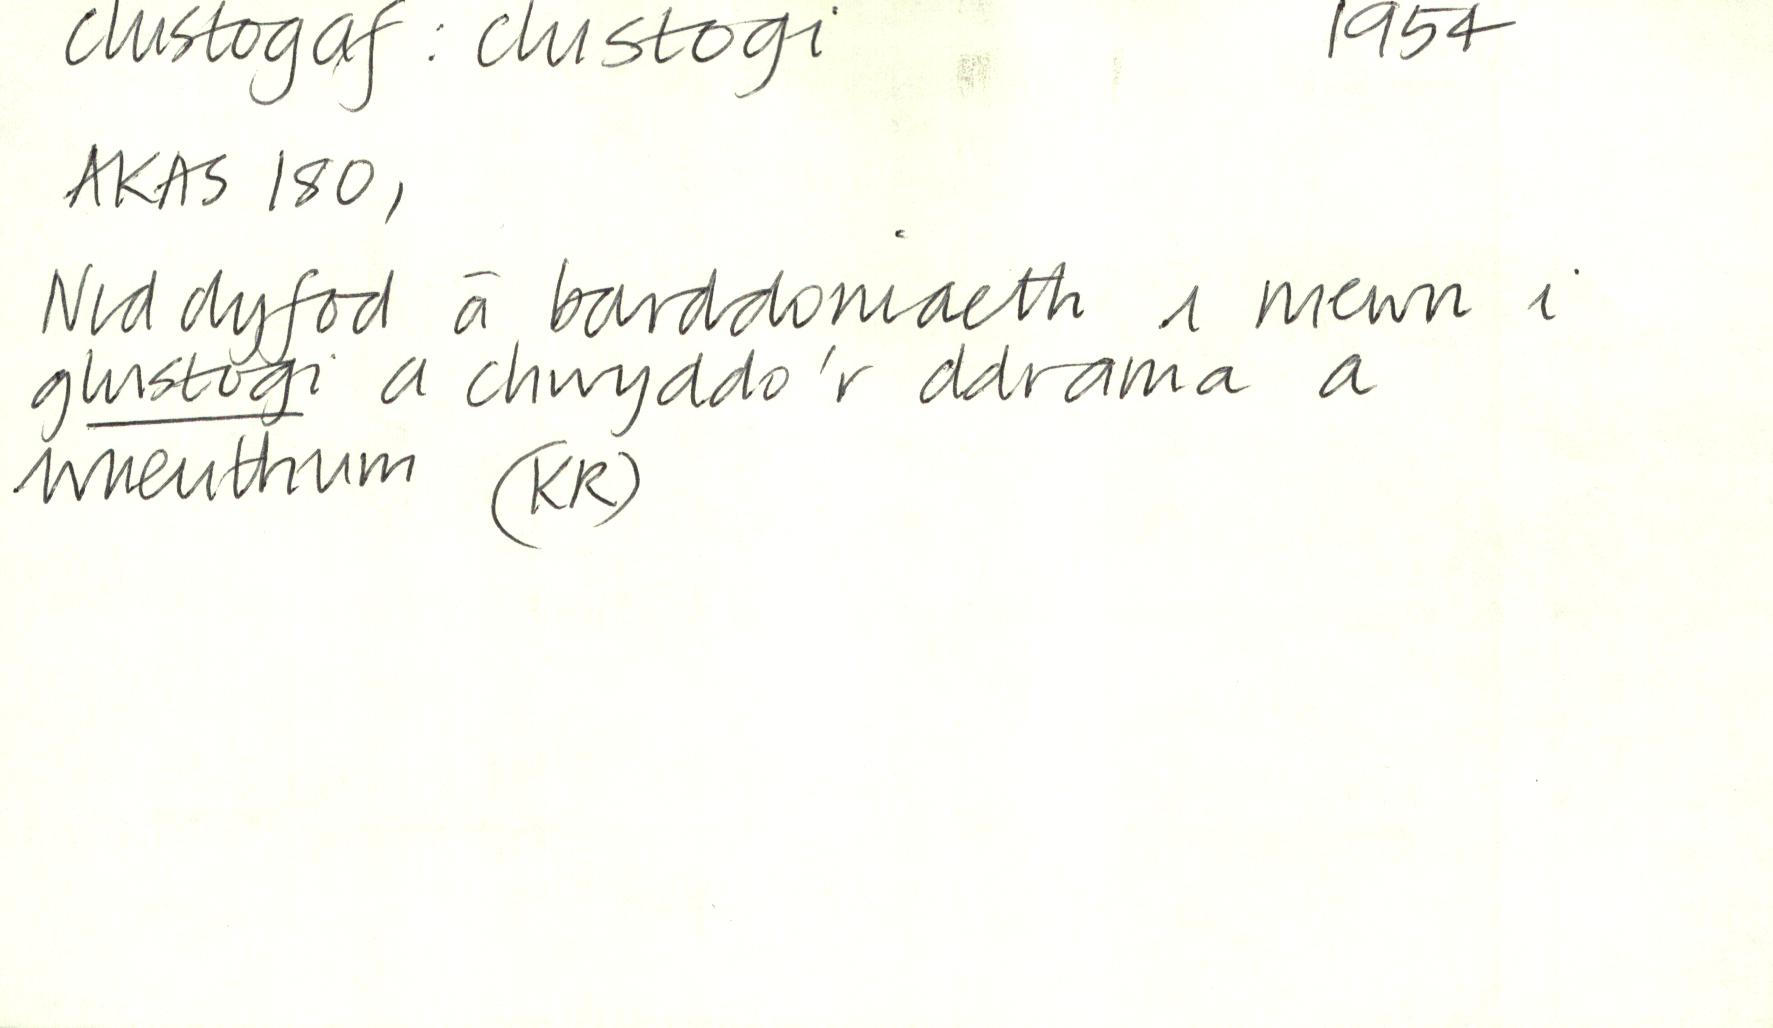 clustogaf : clustogi 1954
AKAS 180,
Nid dyfod â barddoniaeth i mewn i
glustogi a chwyddo'r ddrama a
wneuthum (KR)